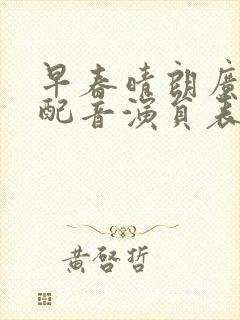 早春晴朗廣
配音演員表
黃啓哲